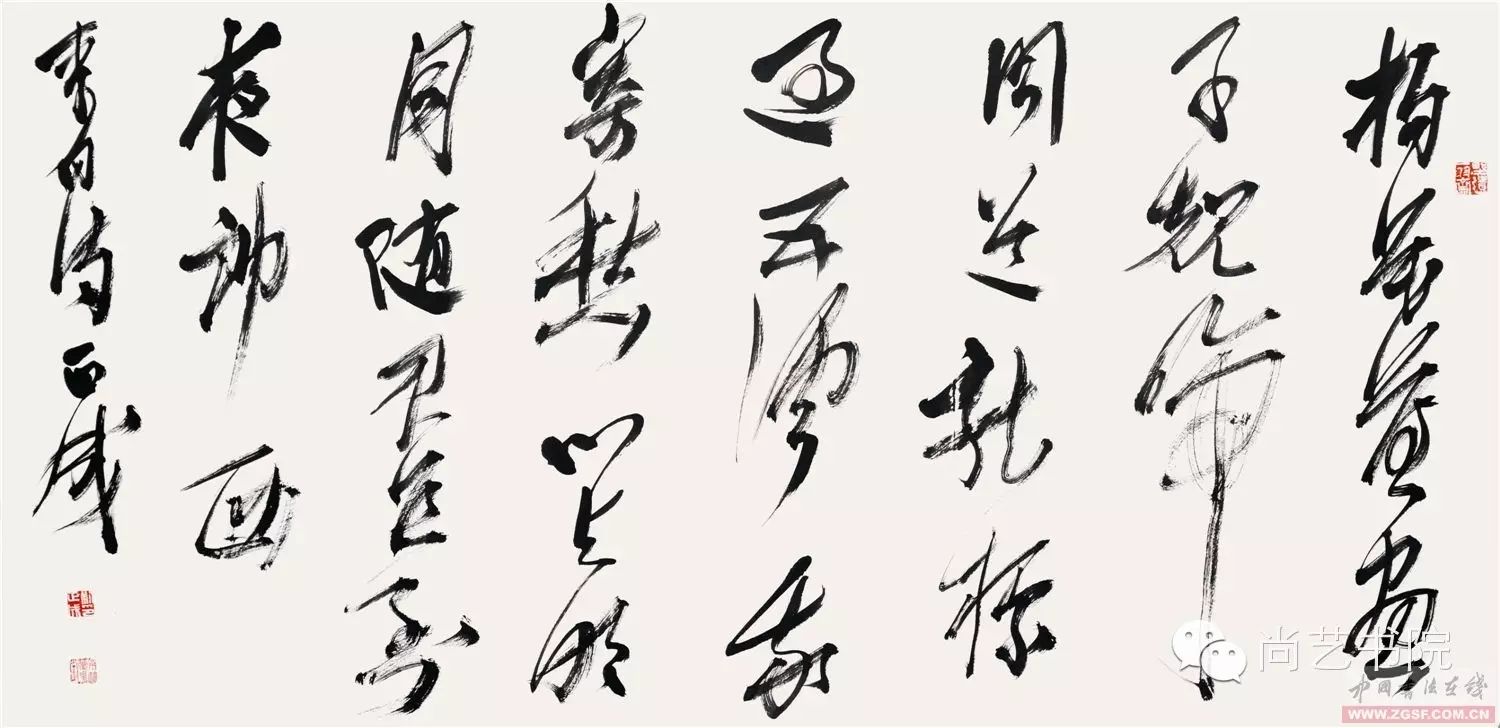 楊花落盡
子規啼
聞道龍標
過五溪我
寄愁心与明
月随君直到
夜郎西
李白詩正成
尚艺书院
中国书法在线
WWW.ZGSF.COM.CN